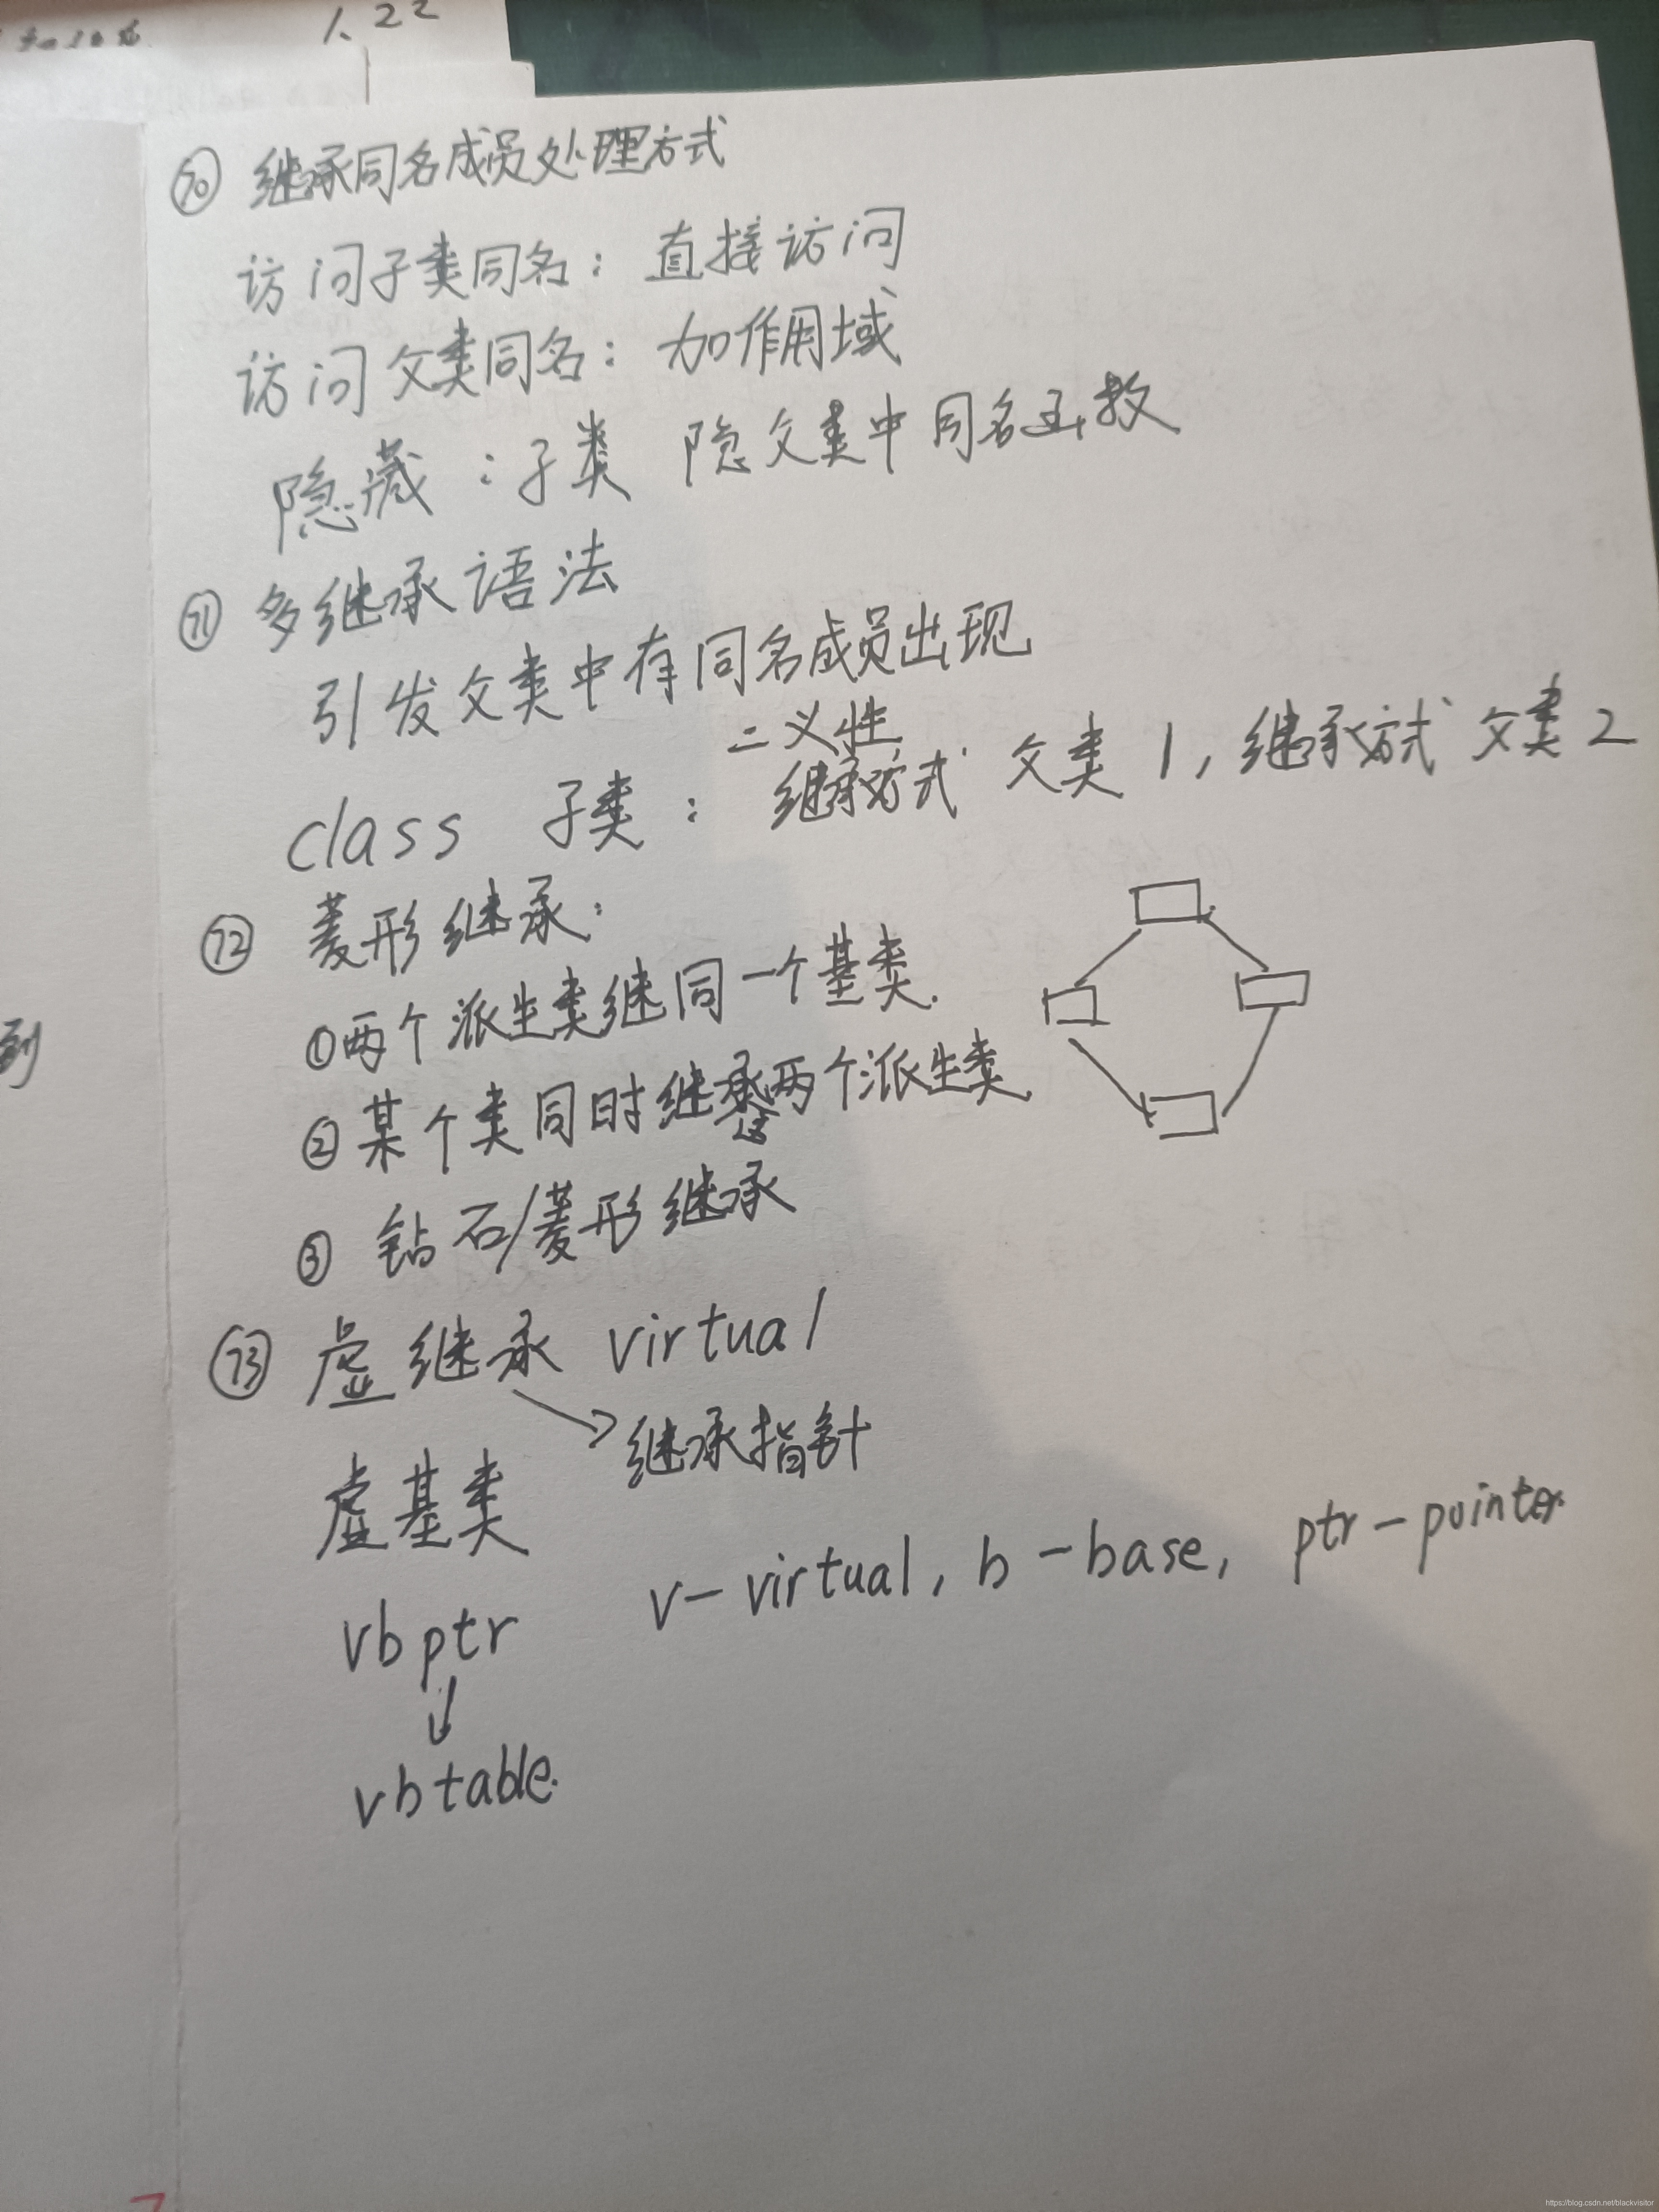 1、22
⑦⓪ 继承同名成员处理方式
访问子类同名：直接访问
访问父类同名：加作用域
隐藏：子类 隐父类中同名函数
⑦① 多继承语法
引发父类中有同名成员出现
二义性
class 子类：继承方式 父类1，继承方式 父类2
⑦② 菱形继承：
①两个派生类继同一个基类.
②某个类同时继承这两个派生类.
③ 钻石/菱形继承
⑦③ 虚继承 virtual
继承指针
虚基类
vbptr v-virtual, b-base, ptr-pointer
vbtable.
到
https://blog.csdn.net/blackvisitor